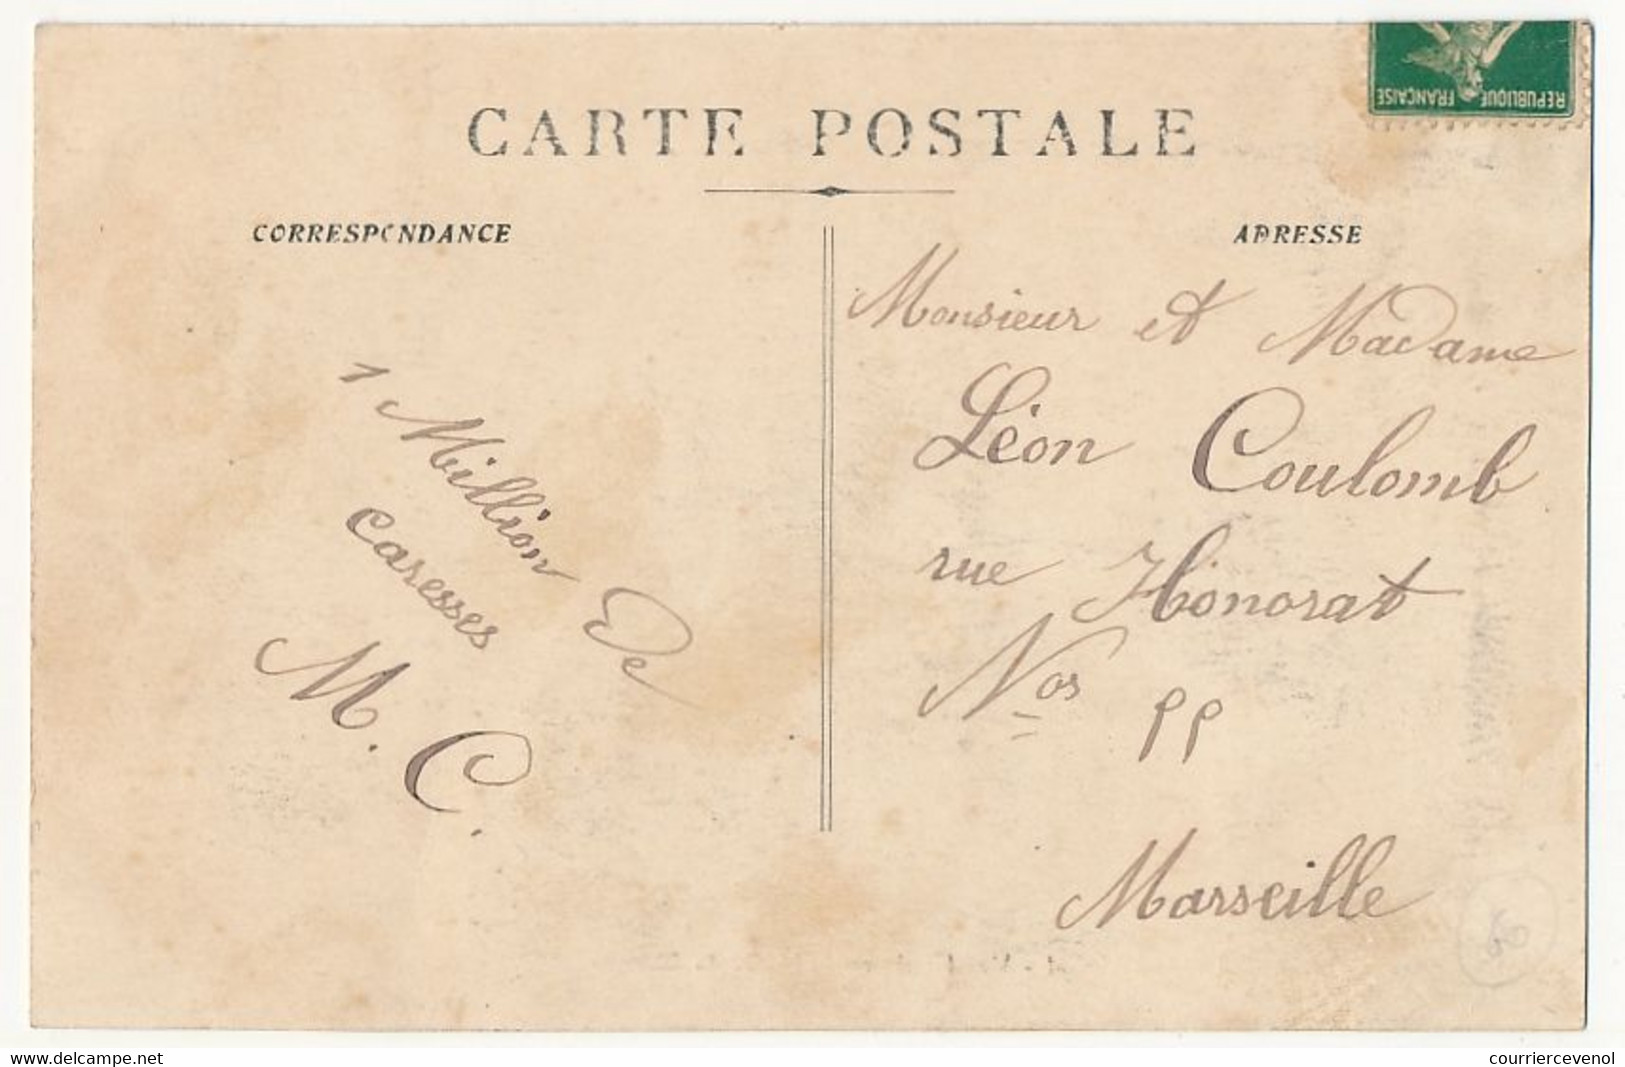 RÉPUBLIQUE FRANÇAISE
CARTE POSTALE
CORRESPONDANCE
ADRESSE
1 Million De
Caresses
M. C.
Monsieur et Madame
Léon Coulomb
rue Honorat
Nos
Marseille
www.delcampe.net
courriercevenol